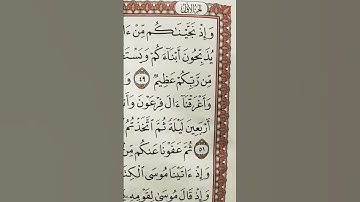 وَإِذْ نَجَّيْنَٰكُم مِّنْ ءَا
يُذَبِّحُونَ أَبْنَآءَكُمْ وَيَسْتَ
مِّن رَّبِّكُمْ عَظِيمٌ ٤٩ وَ
وَأَغْرَقْنَآ ءَالَ فِرْعَوْنَ وَأَن
أَرْبَعِينَ لَيْلَةً ثُمَّ ٱتَّخَذْتُمُ
٥١ ثُمَّ عَفَوْنَا عَنكُم مِّن
وَإِذْ ءَاتَيْنَا مُوسَى ٱلْكِتَ
وَإِذْ قَالَ مُوسَىٰ لِقَوْمِهِۦ